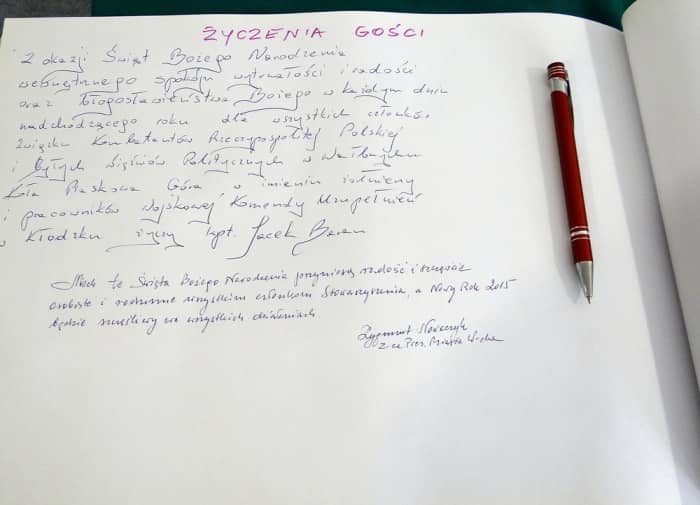 ŻYCZENIA GOŚCI
Z okazji Świąt Bożego Narodzenia
wewnętrznego spokoju wytrwałości i radości
oraz błogosławieństwa Bożego w każdym dniu
nadchodzącego roku dla wszystkich członków
Związku Kombatantów Rzeczypospolitej Polskiej
i byłych Więźniów Politycznych w Wałbrzychu
Koła Piaskowa Góra w imieniu
i pracowników Wojskowej Komendy Uzupełnień
w Kłodzku życzy kpt. Jacek Baran
Niech te Święta Bożego Narodzenia przyniosą radość i szczęście
osobiste i rodzinne wszystkim członkom Stowarzyszenia, a Nowy Rok 2015
będzie szczęśliwy we wszystkich działaniach
Zygmunt Nowaczyk
Z-ca Prez. Miasta W-cha